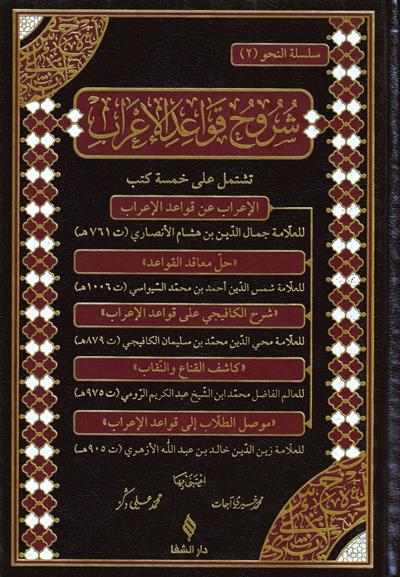 سلسلة النحو (٢)
شروح قواعد الإعراب
تشتمل على خمسة كتب
الإعراب عن قواعد الإعراب
للعلّامة جمال الدّين بن هشام الأنصاري (ت ٧٦١هـ)
«حلّ معاقد القواعد»
للعلّامة شمس الدّين أحمد بن محمّد السّيواسي (ت ١٠٠٦هـ)
«شرح الكافيجي على قواعد الإعراب»
للعلّامة محي الدّين محمّد بن سليمان الكافيجي (ت ٨٧٩هـ)
«كاشف القناع والنّقاب»
للعالم الفاضل محمّد ابن الشّيخ عبد الكريم الرّومي (ت ٩٧٥هـ)
«موصل الطلّاب إلى قواعد الإعراب»
للعلّامة زين الدّين خالد بن عبد اللّه الأزهري (ت ٩٠٥هـ)
اعتنى بها
محمد خيري آجات
محمد علي دگز
دار الشفا